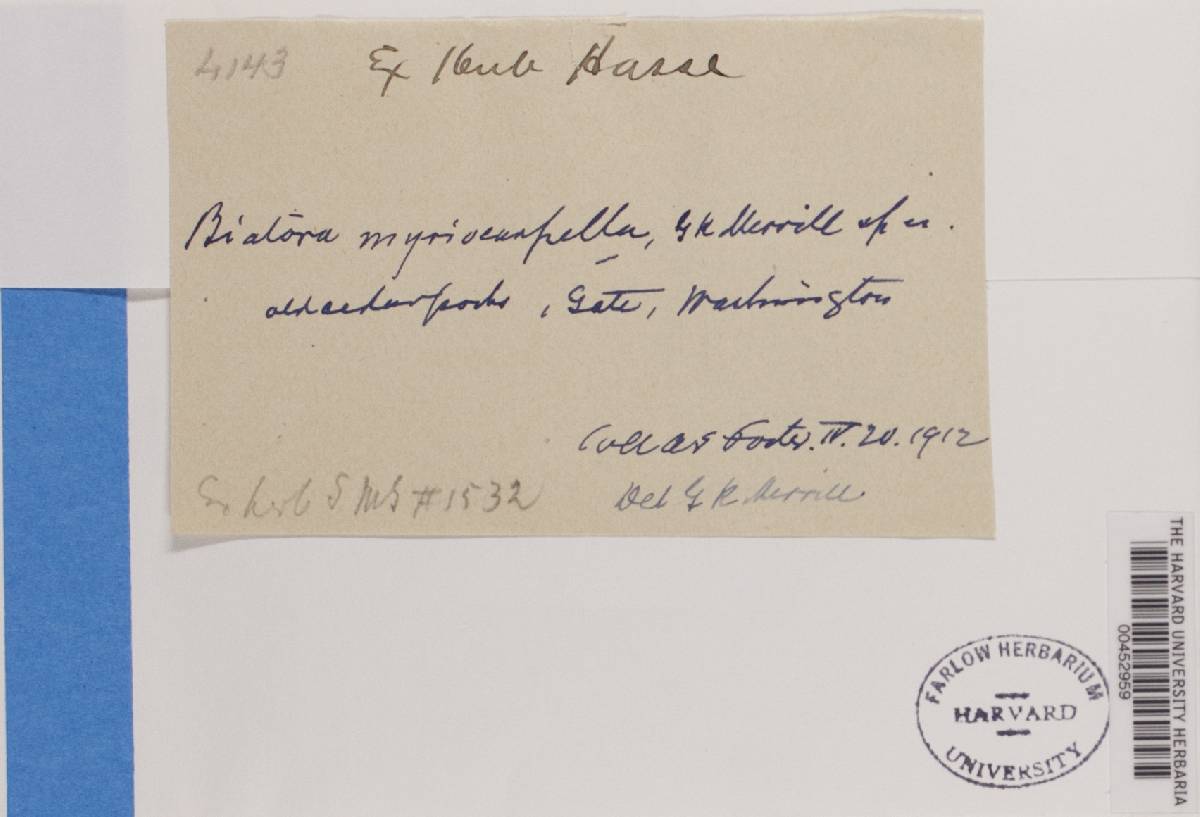 4143 Ex Herb Hasse
Biatora myriocarpella, G K Merrill sp n.
old cedar posts, Gate, Washington
Coll A S Foster. IV. 20. 1912
Ex herb S M G #1532 Det G K Merrill
FARLOW HERBARIUM
HARVARD
UNIVERSITY
THE HARVARD UNIVERSITY HERBARIA
00452959